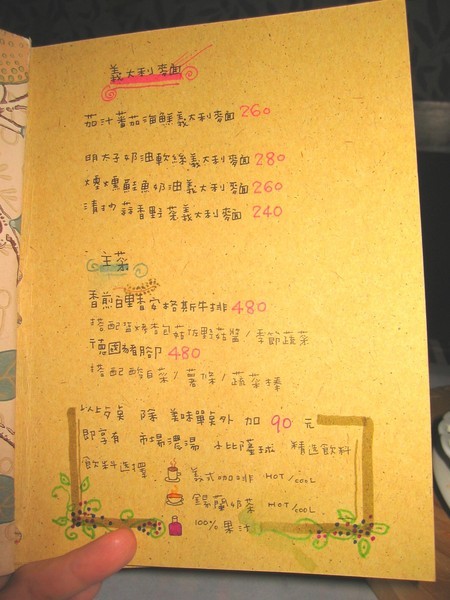 義大利麵
茄汁蕃茄海鮮義大利麵 260
明太子奶油軟絲義大利麵 280
煙燻鮭魚奶油義大利麵 260
清炒蒜香野菜義大利麵 240
主菜
香煎百里香安格斯牛排 480
搭配 烤杏包菇佐野菇醬 / 季節蔬菜
德國豬腳 480
搭配酸白菜 / 薯條 / 蔬菜棒
以上 除 美味單點外 加 90 元
即享有 市場濃湯 小比薩球 精選飲料
飲料選擇
美式咖啡 HOT/COOL
錫蘭奶茶 HOT/COOL
100% 果汁